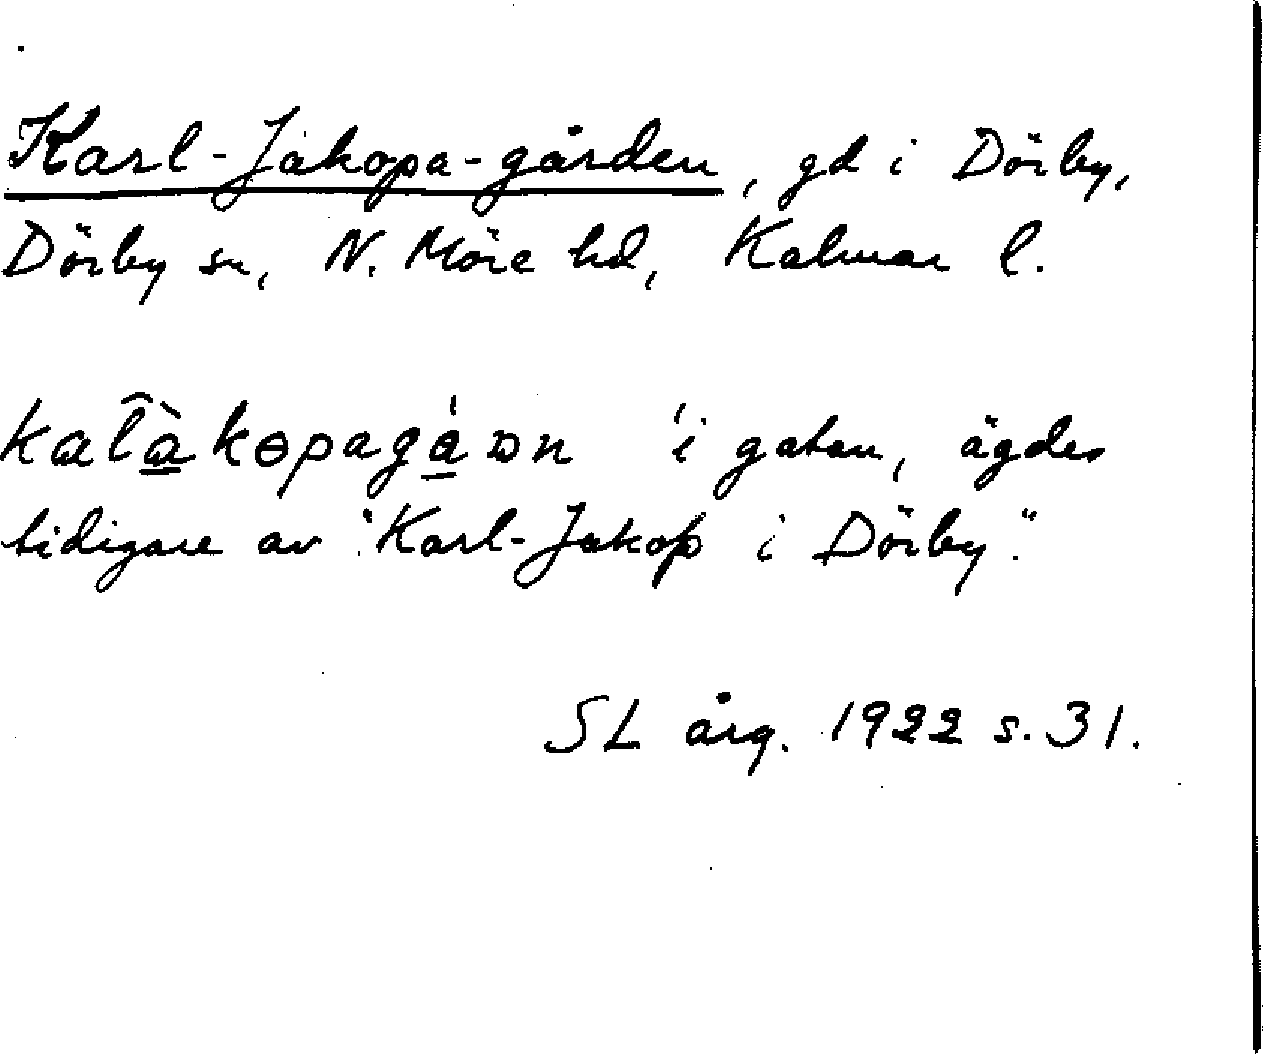 Karl-Jakopa-gården, gd i Dörby,
Dörby sn, N. Möre hd, Kalmar l.
i gatan, ägdes
tidigare av "Karl-Jakop i Dörby".
SL årg. 1922 s. 31.